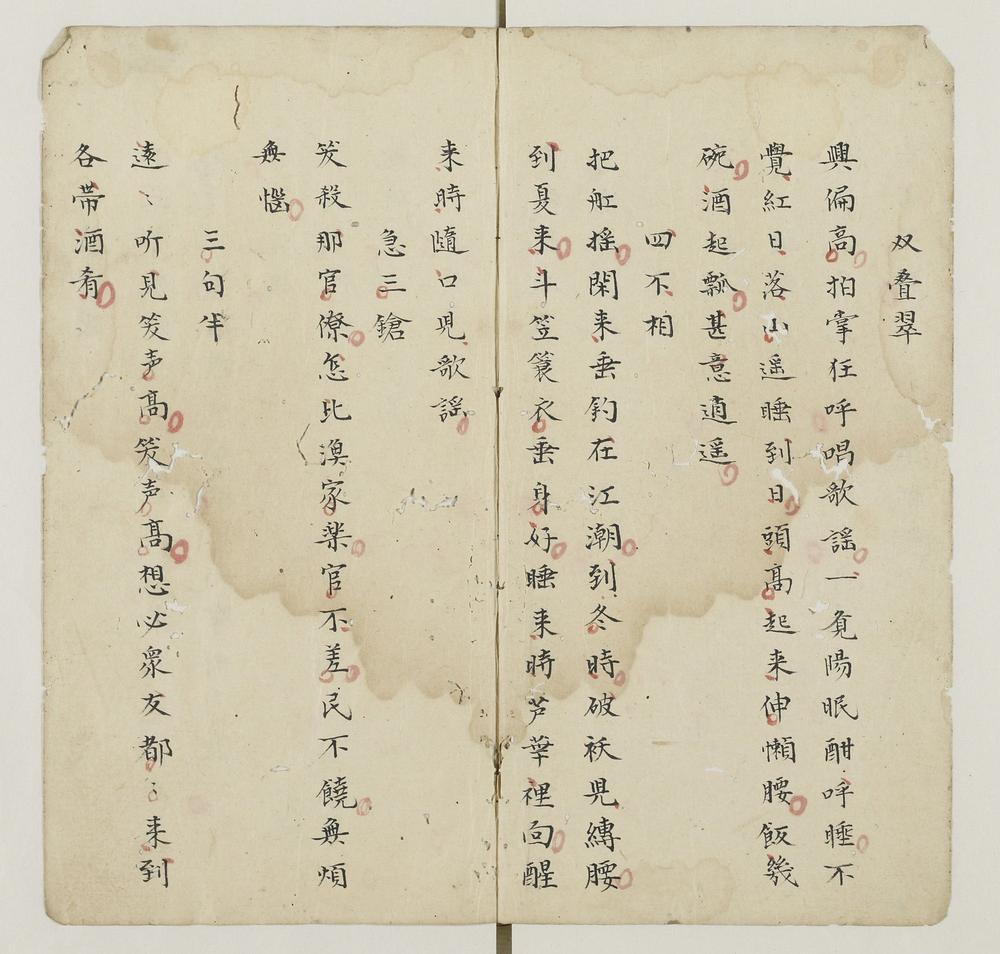 双叠翠
興偏高拍掌狂呼唱歌謡一覓陽眠酣呼睡不
覺紅日落山遥睡到日頭髙起来伸懶腰飯幾
碗酒起瓢甚意逍遥
四不相
把舡摇閑来垂釣在江潮到冬時破袄児縛腰
到夏来斗笠簑衣垂身好睡来時芦華裡向醒
来時隨口児歌謡
急三鎗
笑殺那官僚怎比漁家楽官不差民不饒無煩
無惱
三句半
遠〻听見笑声髙笑声髙想必衆友都〻来到
各帶酒肴